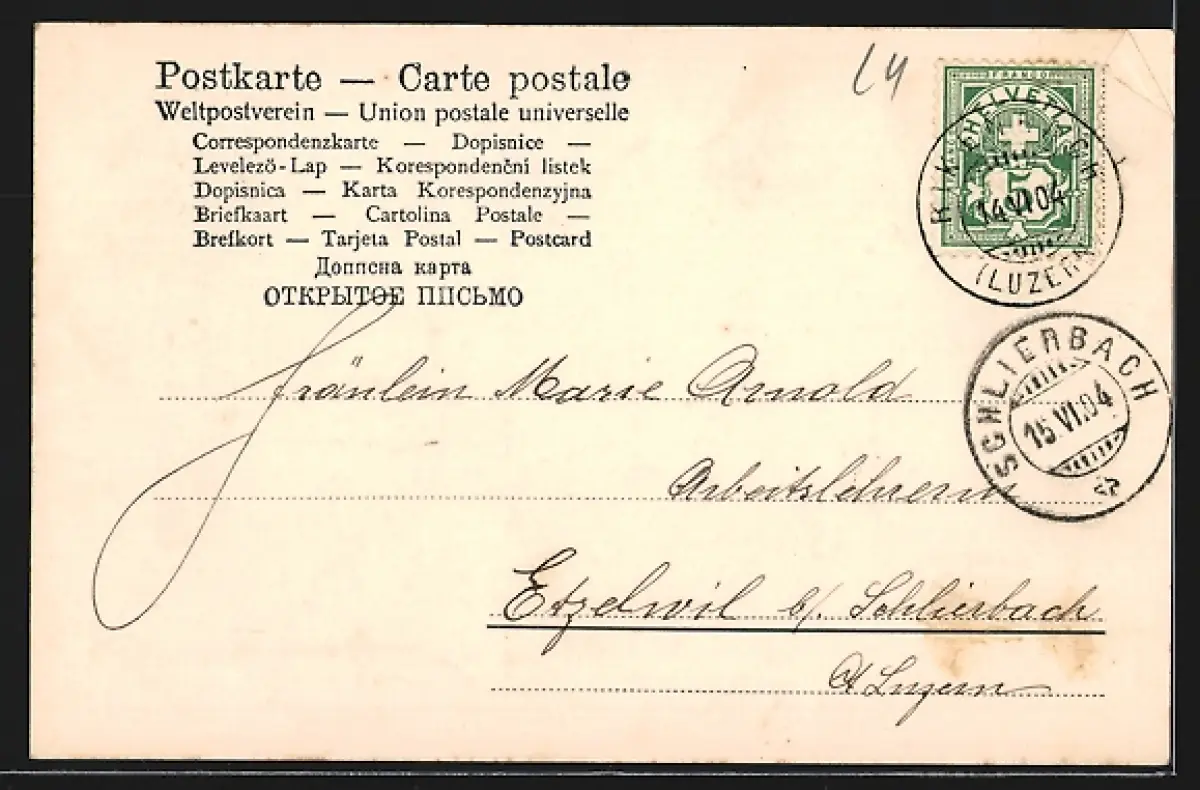 Postkarte — Carte postale
Weltpostverein — Union postale universelle
Correspondenzkarte — Dopisnice —
Levelező-Lap — Korespondenční listek
Dopisnica — Karta Korespondenzyjna
Briefkaart — Cartolina Postale —
Brefkort — Tarjeta Postal — Postcard
Доппсна карта
ОТКРЫТОЕ ППСЬМО
FRANCO
HELVETIA
5
14 VI 04
(LUZERN)
SCHLIERBACH
15.VI.04
Fräulein Marie Arnold
Arbeitslehrerin
Etzelwil b/. Schlierbach
Ct Luzern